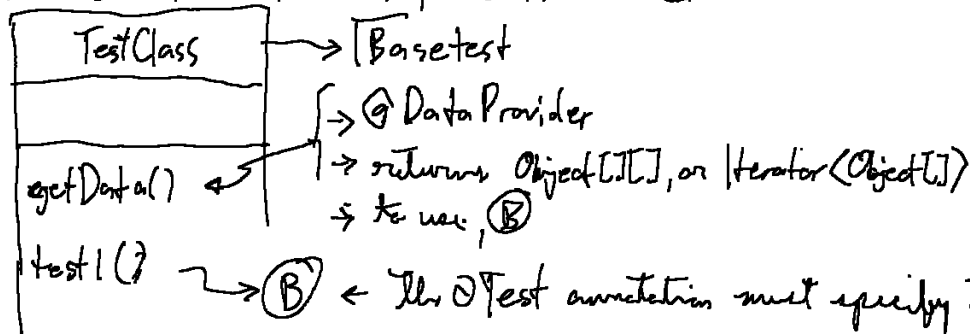 TestClass → Basetest
→ @DataProvider
getData() → returns Object[][], or Iterator<Object[]>
→ to use, B
test1() → B ← The @Test annotation must specify